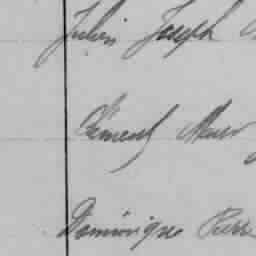 Julien Joseph
Clément
Dominique Pierre